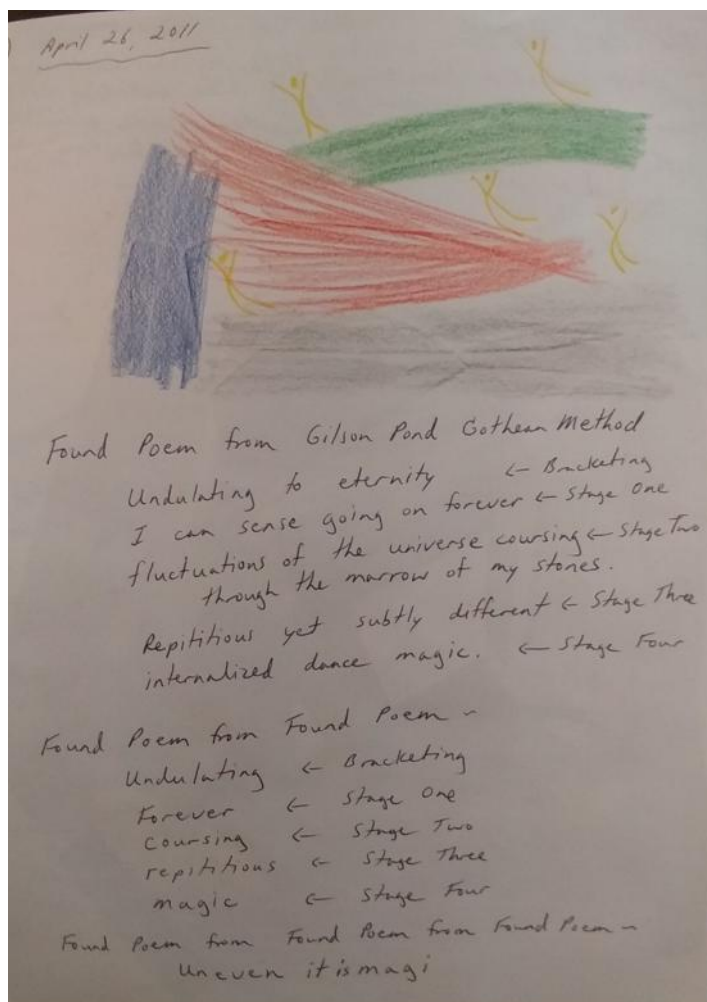 April 26, 2011
Found Poem from Gilson Pond Gothean Method
Undulating to eternity ← Bracketing
I can sense going on forever ← Stage One
fluctuations of the universe coursing ← Stage Two
through the marrow of my stones.
Repititious yet subtly different ← Stage Three
internalized dance magic. ← Stage Four
Found Poem from Found Poem ~
Undulating ← Bracketing
Forever ← Stage One
coursing ← Stage Two
repititious ← Stage Three
magic ← Stage Four
Found Poem from Found Poem from Found Poem ~
Uneven it is magi